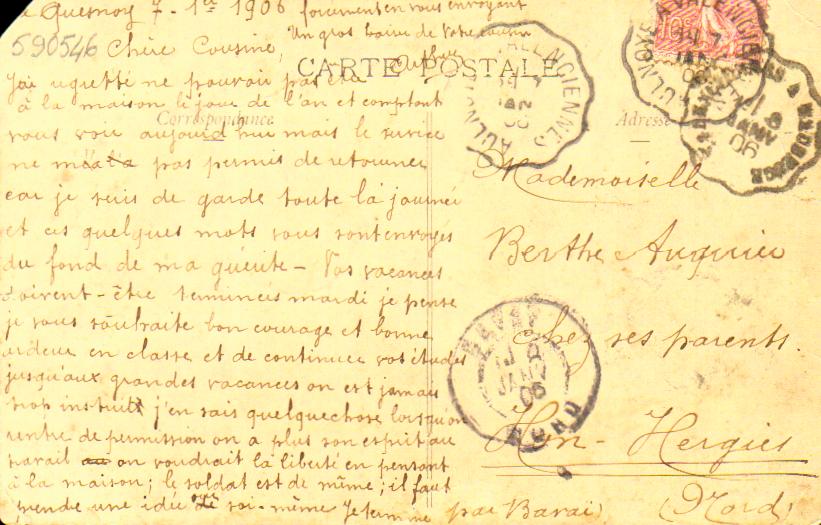 Le Quesnoy 7 - 1er 1906
forcement en vous envoyant
Un gros baiser de Votre cousin
590546
Chère Cousine,
CARTE POSTALE
j'ai regretté ne pouvoir pas être
à la maison le jour de l'an et comptant
Correspondance
vous voir aujourd'hui mais le service
ne m'a pas permis de retourner
car je suis de garde toute la journée
et ces quelques mots vous sont envoyés
du fond de ma guérite - Vos vacances
doivent-être terminées mardi je pense
je vous souhaite bon courage et bonne
ardeur en classe et de continuer vos études
jusqu'aux grandes vacances on est jamais
trop instruit j'en sais quelquechose lorsqu'on
rentre de permission on a plus son esprit au
travail on voudrait la liberté en pensant
à la maison; le soldat est de même; il faut
prendre une idée de soi-même Je termine
Adresse
Mademoiselle
Berthe Auquier
chez ses parents.
Hon-Hergies
par Bavai (Nord)
AULNOYE A VALENCIENNES
JANV
06
AULNOYE A VALENCIENNES
7
JANV
06
MAUBEUGE
JANV
06
BAVAY
8
JANV
06
NORD